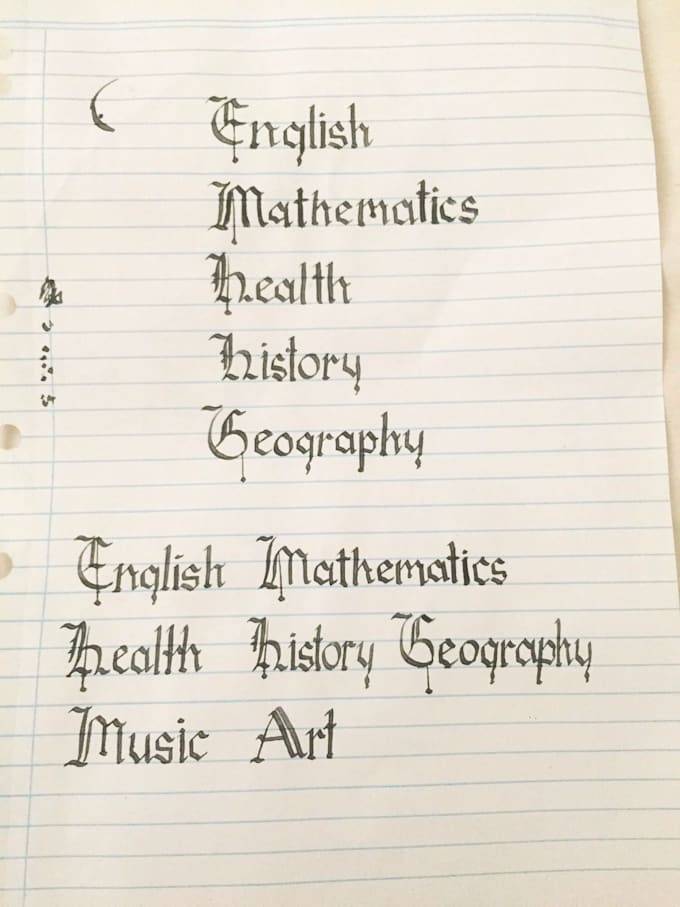 English
Mathematics
Health
History
Geography
English Mathematics
Health History Geography
Music Art